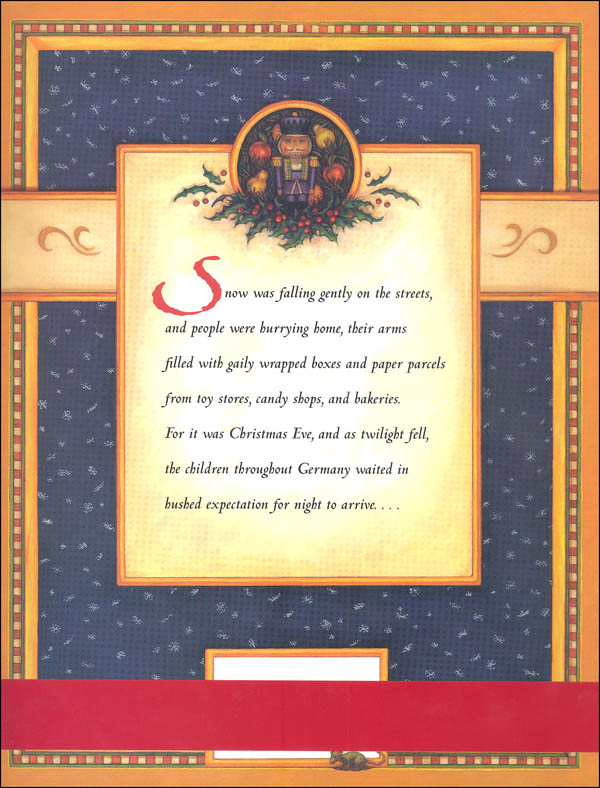 Snow was falling gently on the streets,
and people were hurrying home, their arms
filled with gaily wrapped boxes and paper parcels
from toy stores, candy shops, and bakeries.
For it was Christmas Eve, and as twilight fell,
the children throughout Germany waited in
hushed expectation for night to arrive. . . .